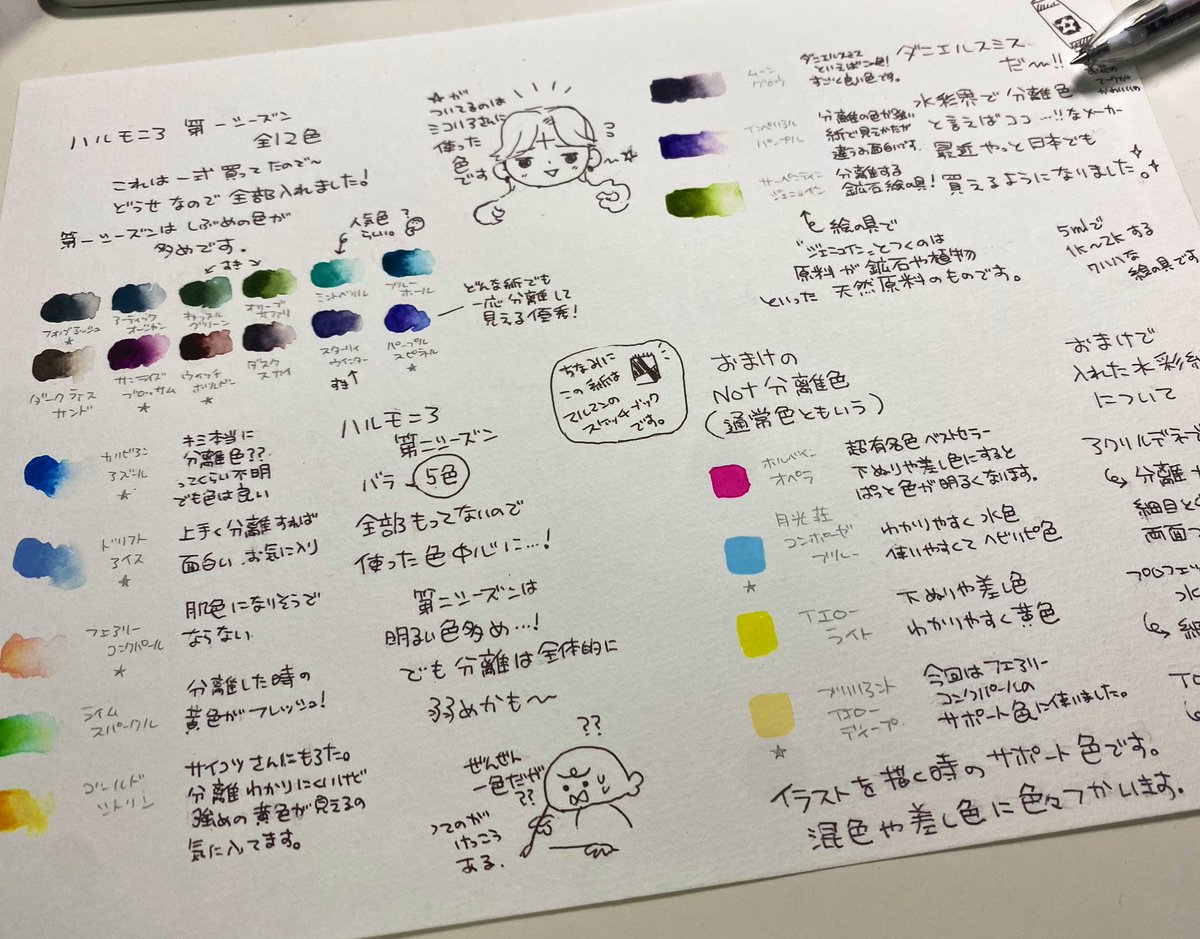 ハルモニア 第一シーズン
全12色
これは一式 買ってたので〜
どうせなので全部入れました!
第一シーズンは しぶめの色が
多めです。
☆が
ついてるのは
ミコいろさんに
使った
色
です
すき
人気色
らしい。
フォッグアッシュ
☆
アーティック
オーシャン
キャッスル
グリーン
オリーブ
サファリ
ミントベリル
ブルー
ホール
ダークテラス
サンド
サンライズ
ブロッサム
☆
ウィッチ
ボルドン
☆
ダスク
スカイ
スターリィ
ウィンター
すき
パープル
スピネル
☆
どんな紙でも
一応分離して
見える優秀!
カリビアン
アズール
☆
キミ本当に
分離色??
ってくらい不明
でも色は良い
ドリフト
アイス
☆
上手く分離すれば
面白い、お気に入り
フェアリー
コンクパール
☆
肌色になりそうで
ならない
ライム
スパークル
分離した時の
黄色がフレッシュ!
ゴールド
シトリン
サイコツさんにもろた。
分離わかりにくいけど
強めの黄色が見えるの
気に入ってます。
ハルモニア
第二シーズン
バラ 5色
全部もってないので
使った色中心に…!
第二シーズンは
明るい色多め…!
でも分離は全体的に
弱めかも〜
??
ぜんぜん
一色だが
??
ってのが
けっこう
ある.
ちなみに
この紙は
マルマンの
スケッチブック
です。
ムーン
グロウ
ダニエルスミス
といえばこの色!
すごく良い色です。
インペリアル
パープル
分離の色が強い
紙で見えかたが
違うの面白いです。
サーペンティン
ジェニュイン
分離する
鉱石絵の具!
ダニエルスミス
だ〜!!
水彩界で分離色
と言えばココ…!!なメーカー
最近やっと日本でも
買えるようになりました。
絵の具で
"ジェニュイン"とつくのは
原料が鉱石や植物
といった 天然原料のものです。
5mlで
1K〜2Kする
絵の具です
おまけの
Not分離色
(通常色ともいう)
ホルベイン
オペラ
超有名色ベストセラー
下ぬりや差し色にすると
ぱっと色が明るくなります。
月光荘
コンポーゼ
ブルー
☆
わかりやすく水色
使いやすくてヘビリピ色
イエロー
ライト
下ぬりや差し色
わかりやすく黄色
ブリリアント
イエロー
ディープ
☆
今回はフェアリー
コンクパールの
サポート色に使いました。
イラストを描く時のサポート色です。
混色や差し色に色々つかいます。
おまけで
入れた水彩紙
について
分離
細目と
両面
水
細